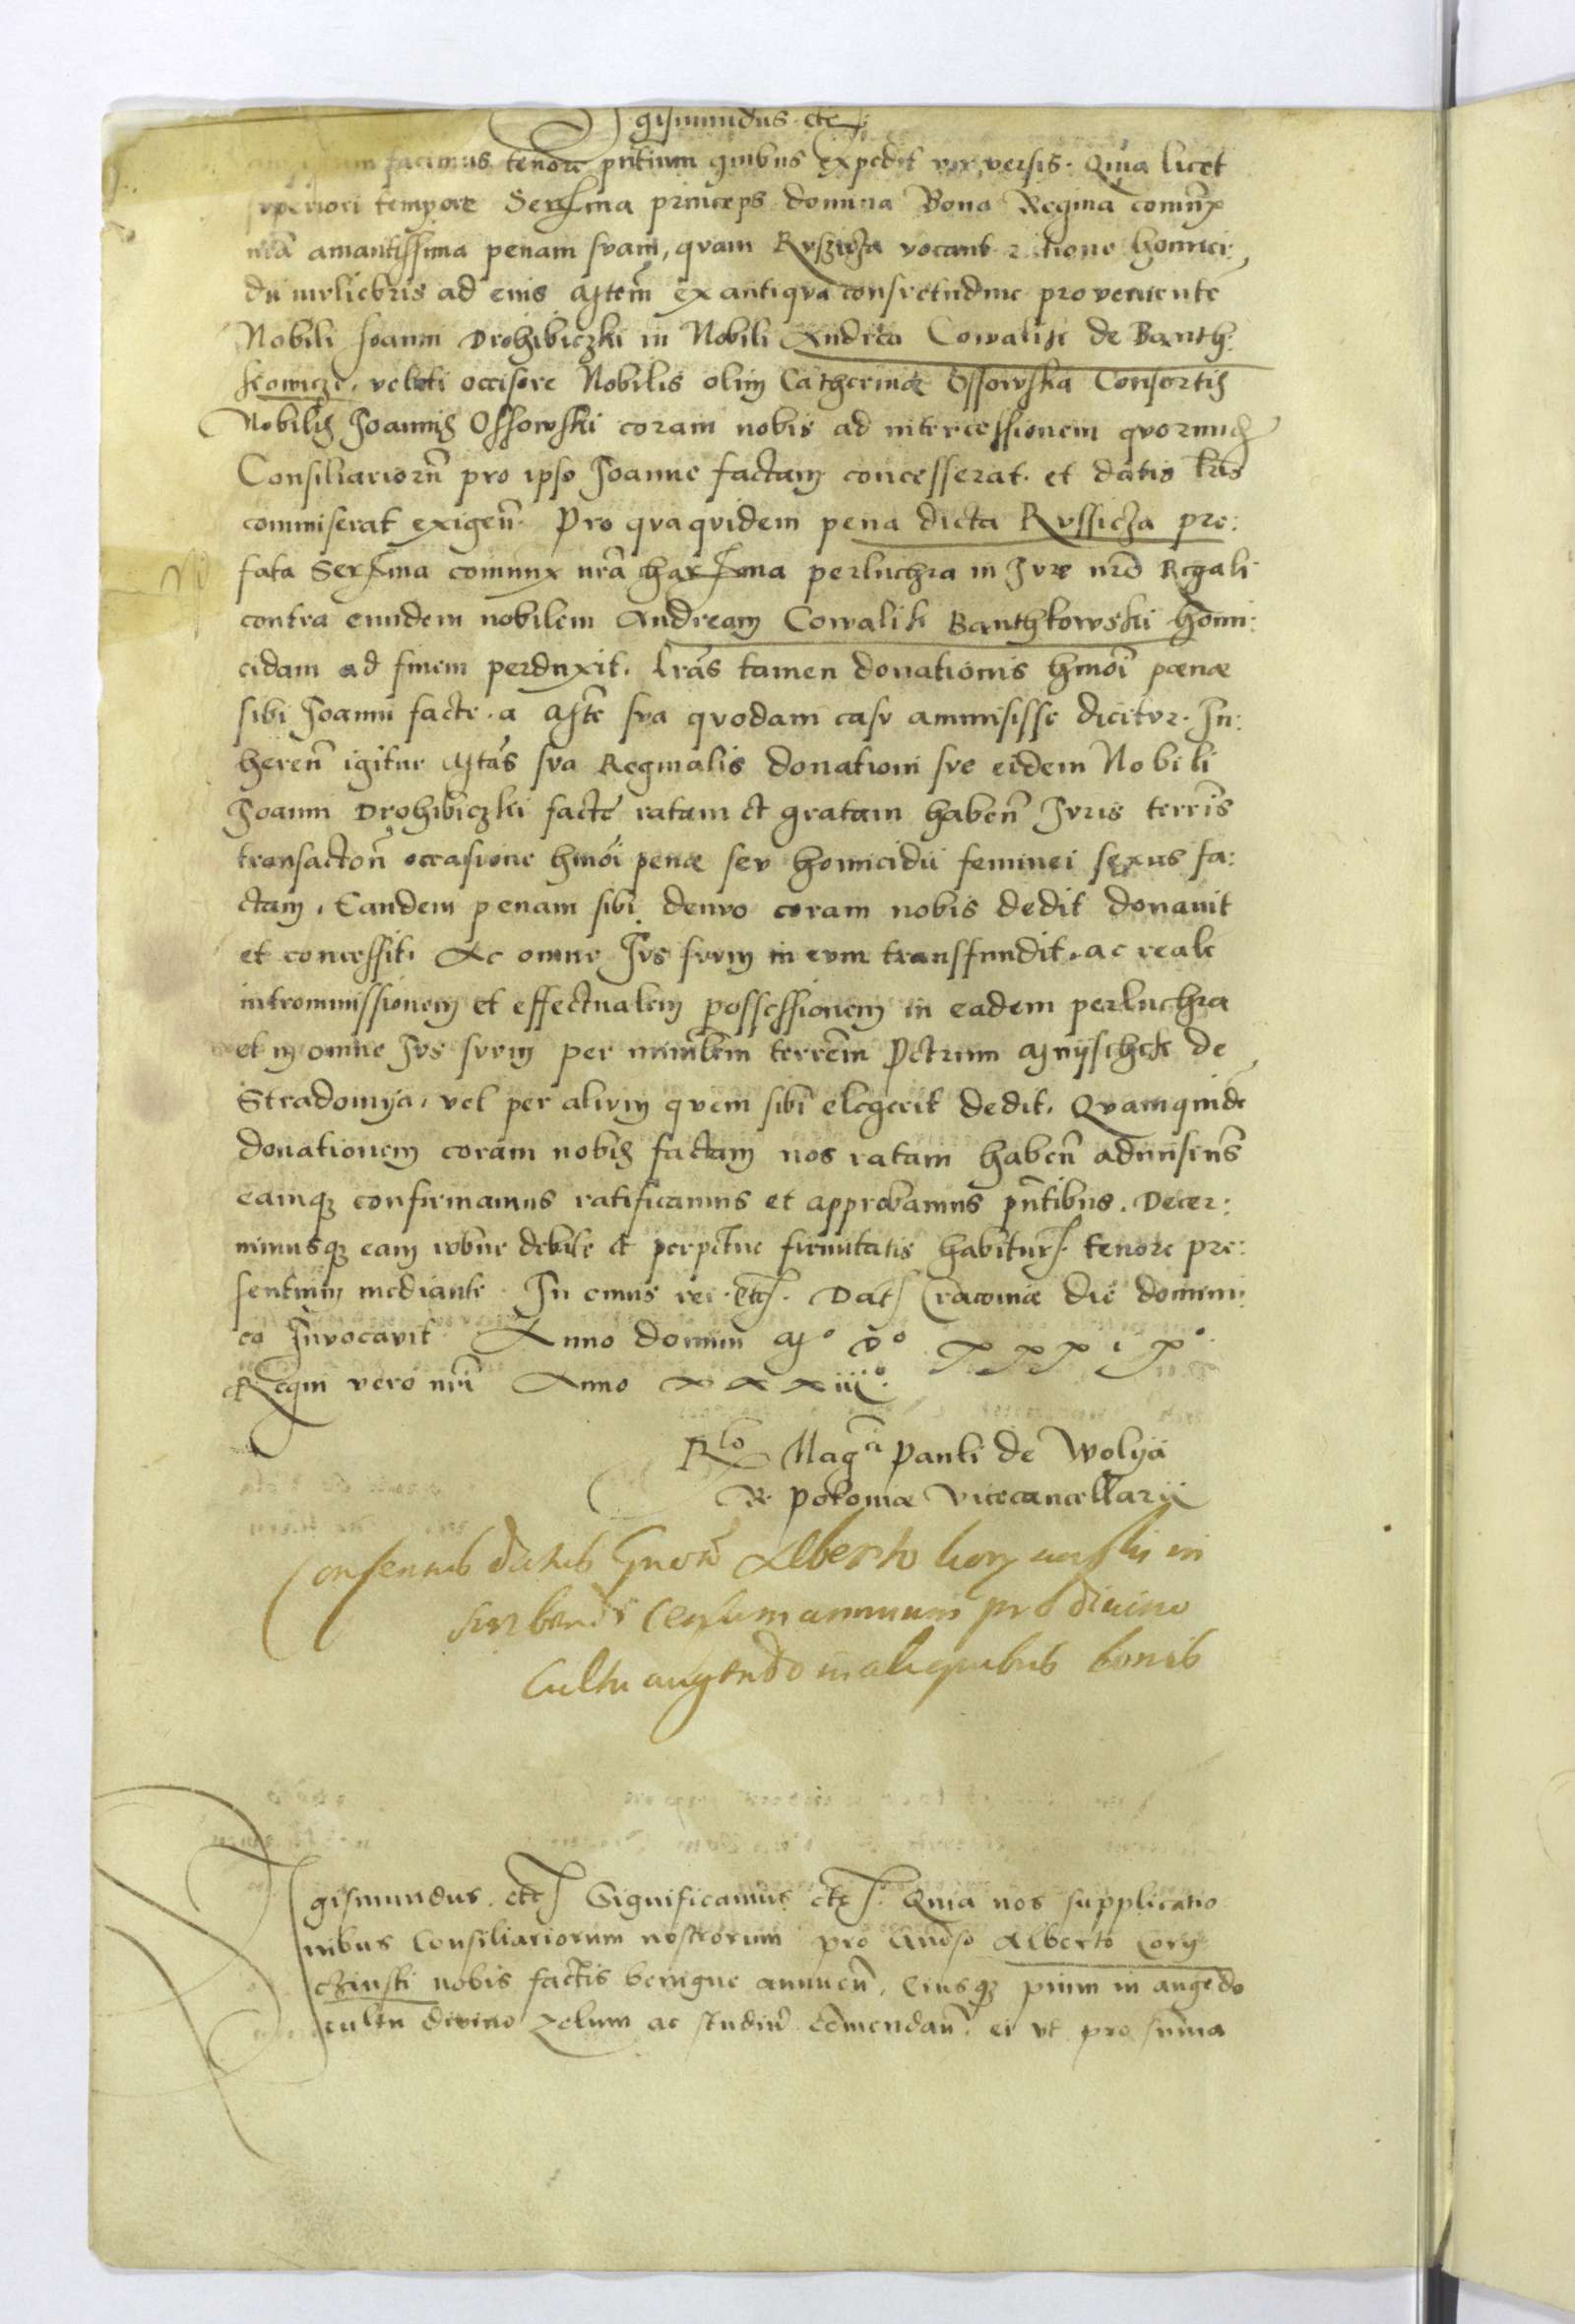 Sigismundus etc
facimus tenore pñtium quibus expedit vniversis. Quia licet
superiori tempore Serma princeps domina Bona Regina coniunx
nrã amantissima penam suam, quam Ruszicza vocant ratione homici:
dii muliebris ad eius Mtem ex antiqua consuetudine provenientẽ
Nobili Joanni Drohibiczki in Nobili Andrea Cowalik de Banth:
kowicze, veluti occisore Nobilis olim Catherinæ Ossowska Consortis
Nobilis Joannis Ossowski coram nobis ad intercessionem quorundã
Consiliariorũ pro ipso Joanne factam concesserat. et datis lris
commiserat exigeñ. Pro qua quidem pena dicta Russicza pre:
fata Serma coniunx nrã charma perluchra in Jure nrõ Regali
contra eundem nobilem Andream Cowalik Banthkowski homi:
cidam ad finem perduxit. lrãs tamen donationis hmõi pænæ
sibi Joanni facte. a Mte sua quodam casu ammisisse dicitur. In:
hereñ igitur Mtas sua Reginalis donationi sue eidem Nobili
Joanni Drohibiczki facte ratam et gratam habeñ Juris terris
transactoñ occasione hmõi penæ seu homicidii feminei sexus fa:
ctam, Eandem penam sibi denuo coram nobis dedit donauit
et concessit. Ac omne Jus suum in eum transfundit. ac reale
intromissionem et effectualem possessionem in eadem perluchra
et in omne Jus suum per ministrem terrem Petrum Mnyschek de
Stradomya, vel per alium quem sibi elegerit dedit. Quamquidẽ
donationem coram nobis factam nos ratam habeñ admisims
eamque confirmamus ratificamus et approbamus pñtibus. Decer:
nimusque eam robur debite et perpetue firmitatis habitur. tenore pre:
sentium mediante. In cuius rei etc. Dat Cracoviæ die domini:
co Invocavit Anno domini Mº vº xxxixº
Regni vero nri Anno xxxiiiº
Rlo Magci Pauli de Wolya
R. Poloniæ vicecancellarii
Consensus datus Gnoso Alberto Coryczinski in
scribendi censum annuum pro divino
Cultu augendo in aliquibus bonis
Sigismundus. etc Significamus etc. Quia nos supplicatio
nibus Consiliariorum nostrorum pro Gnoso Alberto Cory
czinski nobis factis benigne annueñ, Eiusque pium in augẽdo
cultu divino zelum ac studiũ cõmendañ. ei vt pro suma